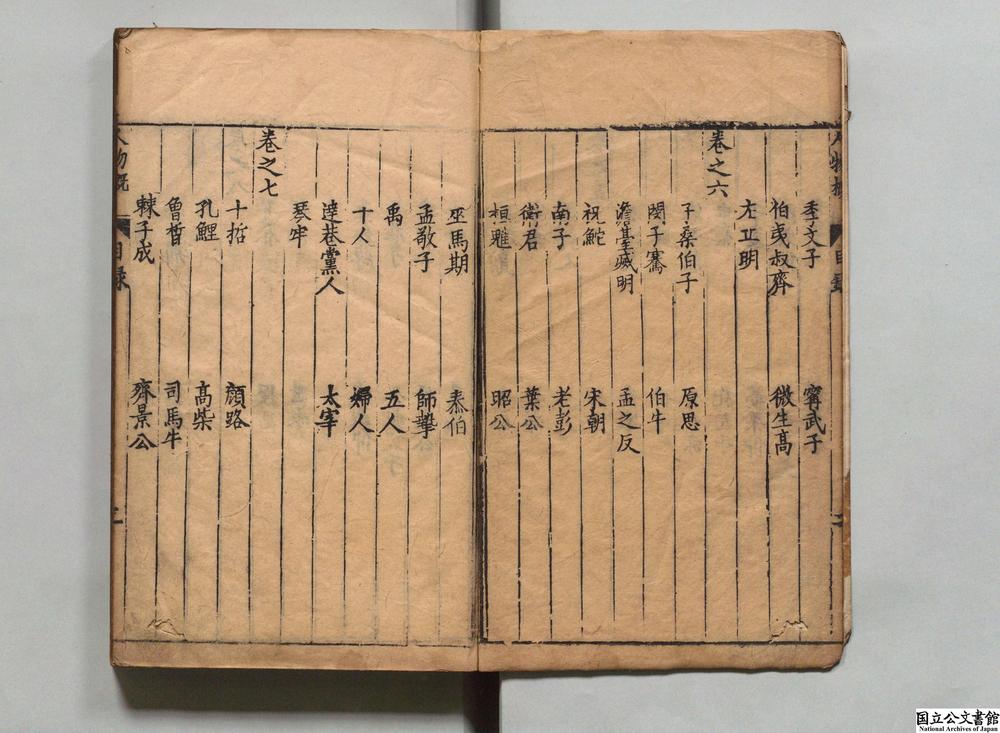 季文子 甯武子
伯夷叔齊 微生高
左丘明
卷之六
子桑伯子 原思
閔子騫 伯牛
澹臺滅明 孟之反
祝鮀 宋朝
南子 老彭
衛君 葉公
桓魋 昭公
巫馬期 泰伯
孟敬子 師摯
禹 五人
十人 婦人
達巷黨人 太宰
琴牢
卷之七
十哲 顏路
孔鯉 高柴
曾晳 司馬牛
棘子成 齊景公
人物概 目錄
国立公文書館
National Archives of Japan